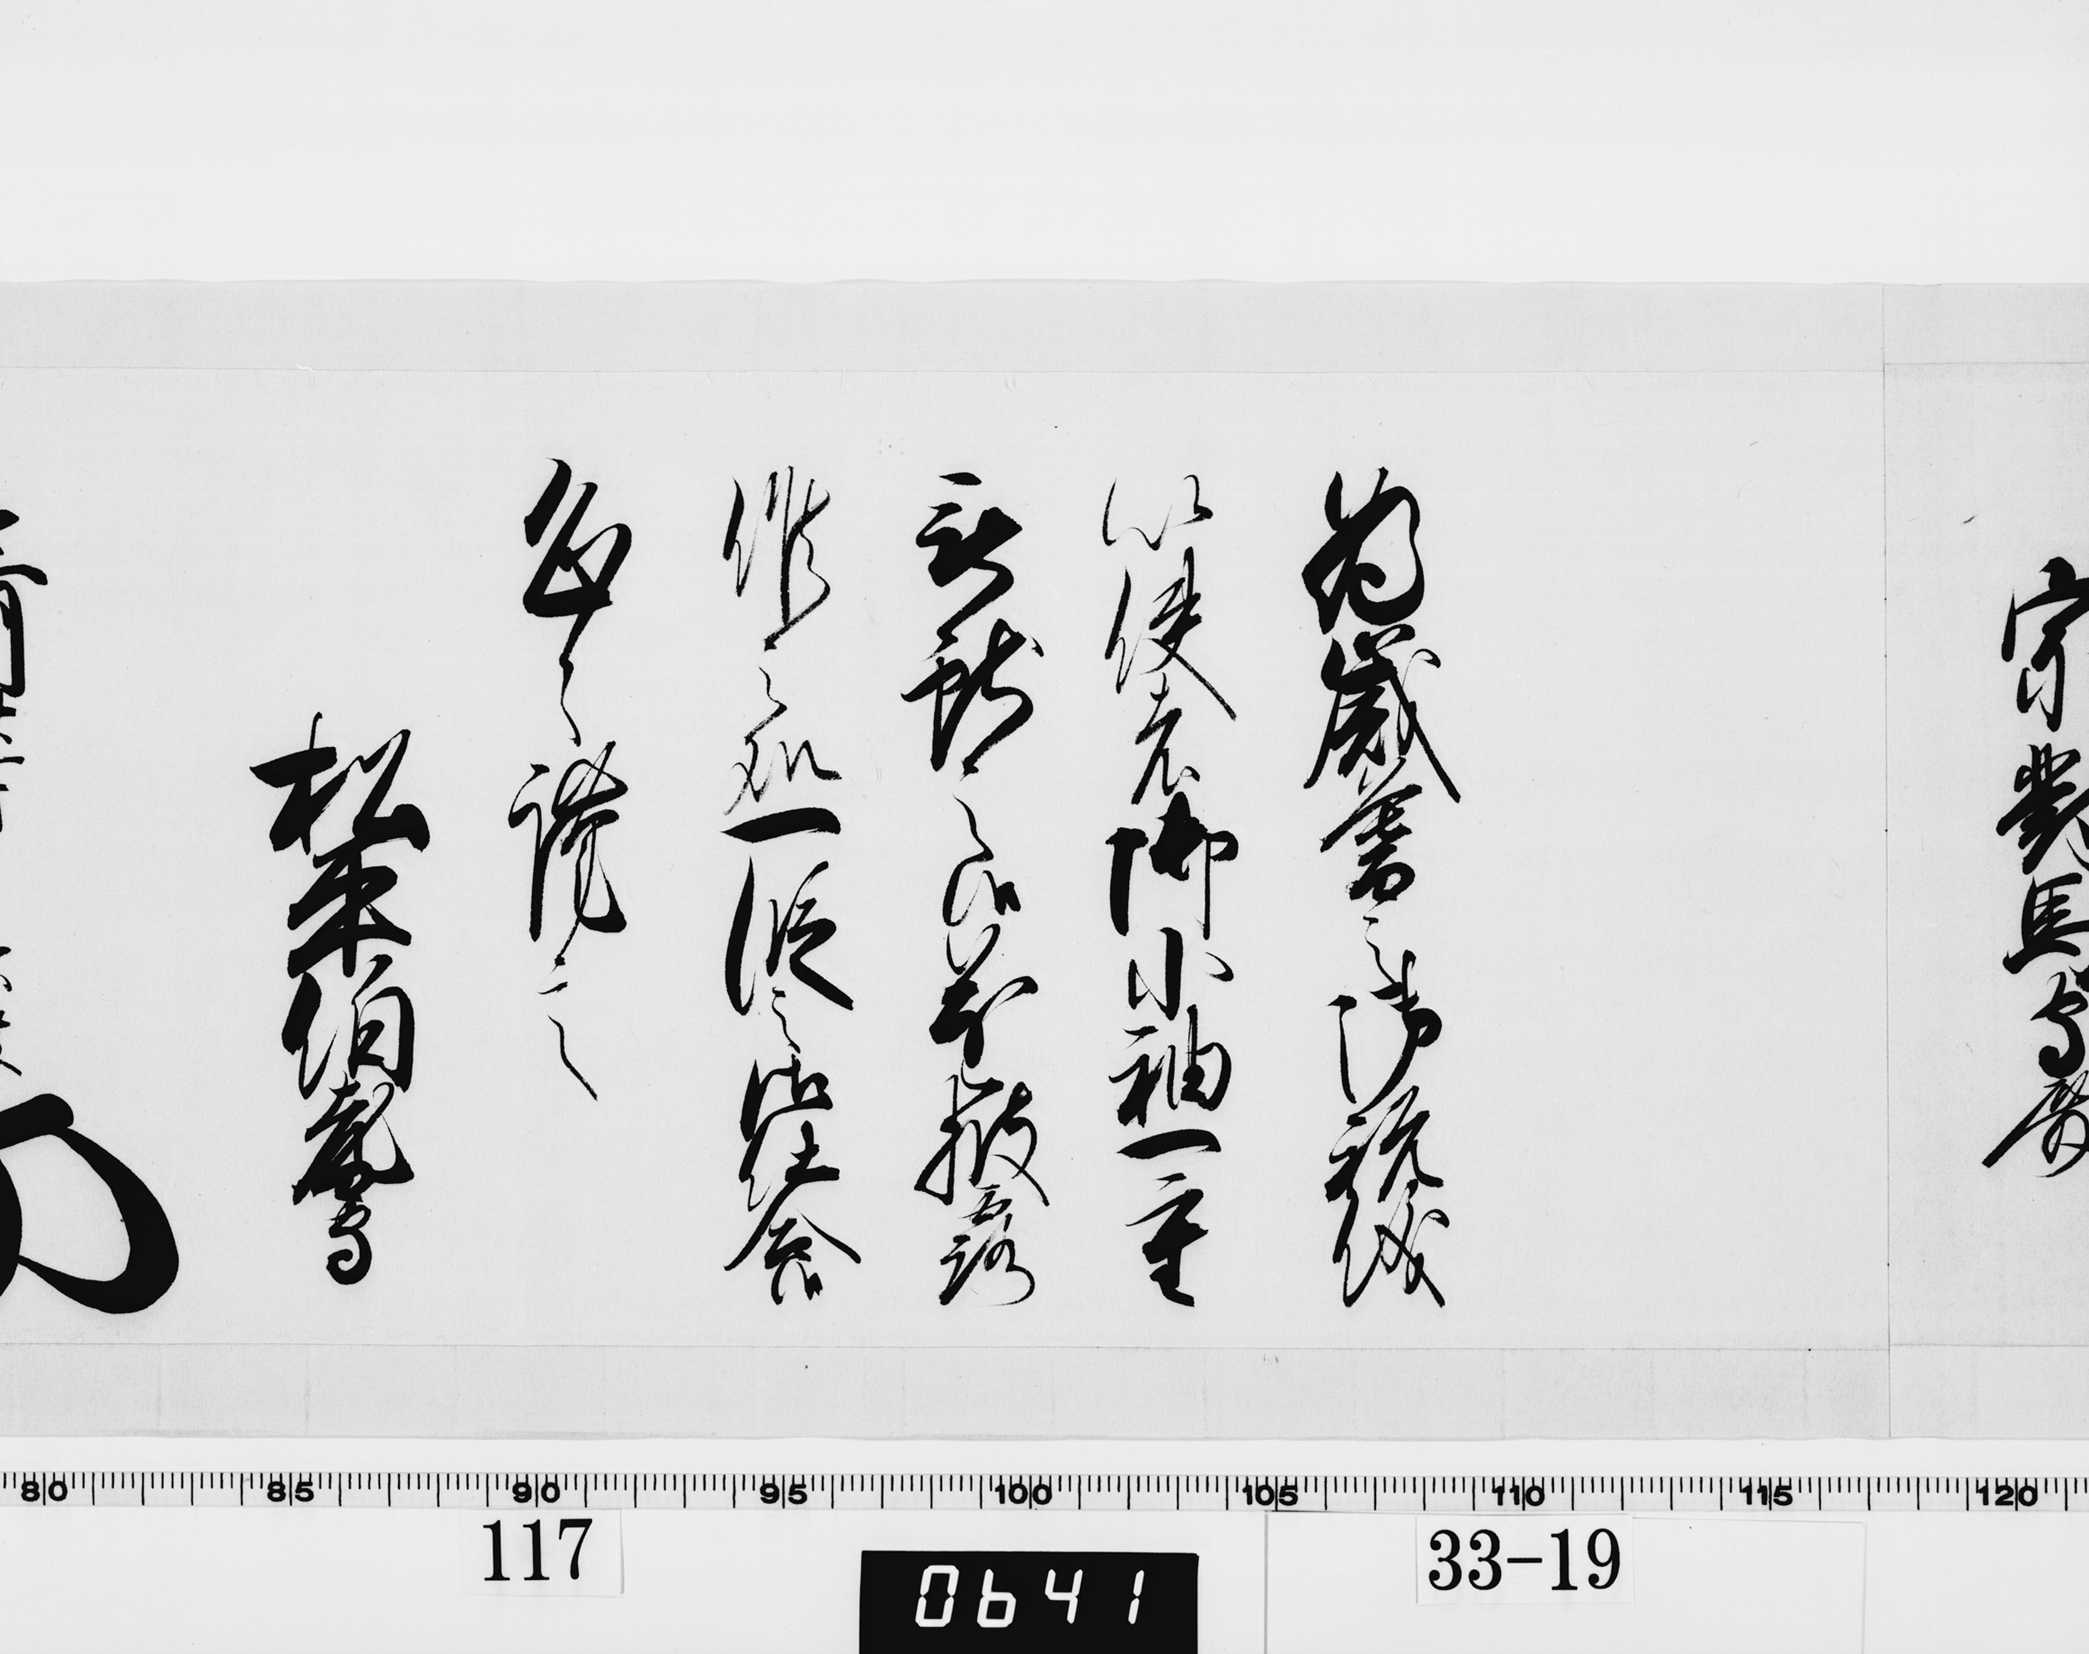 宗對馬守殿
為歳暮之御祝儀
以使者御小袖一重
被献之候 披露
候之処一段之御仕合候
恐々謹言
松平伯耆守
80 85 90 95 100 105 110 115 120
117
0641
33-19